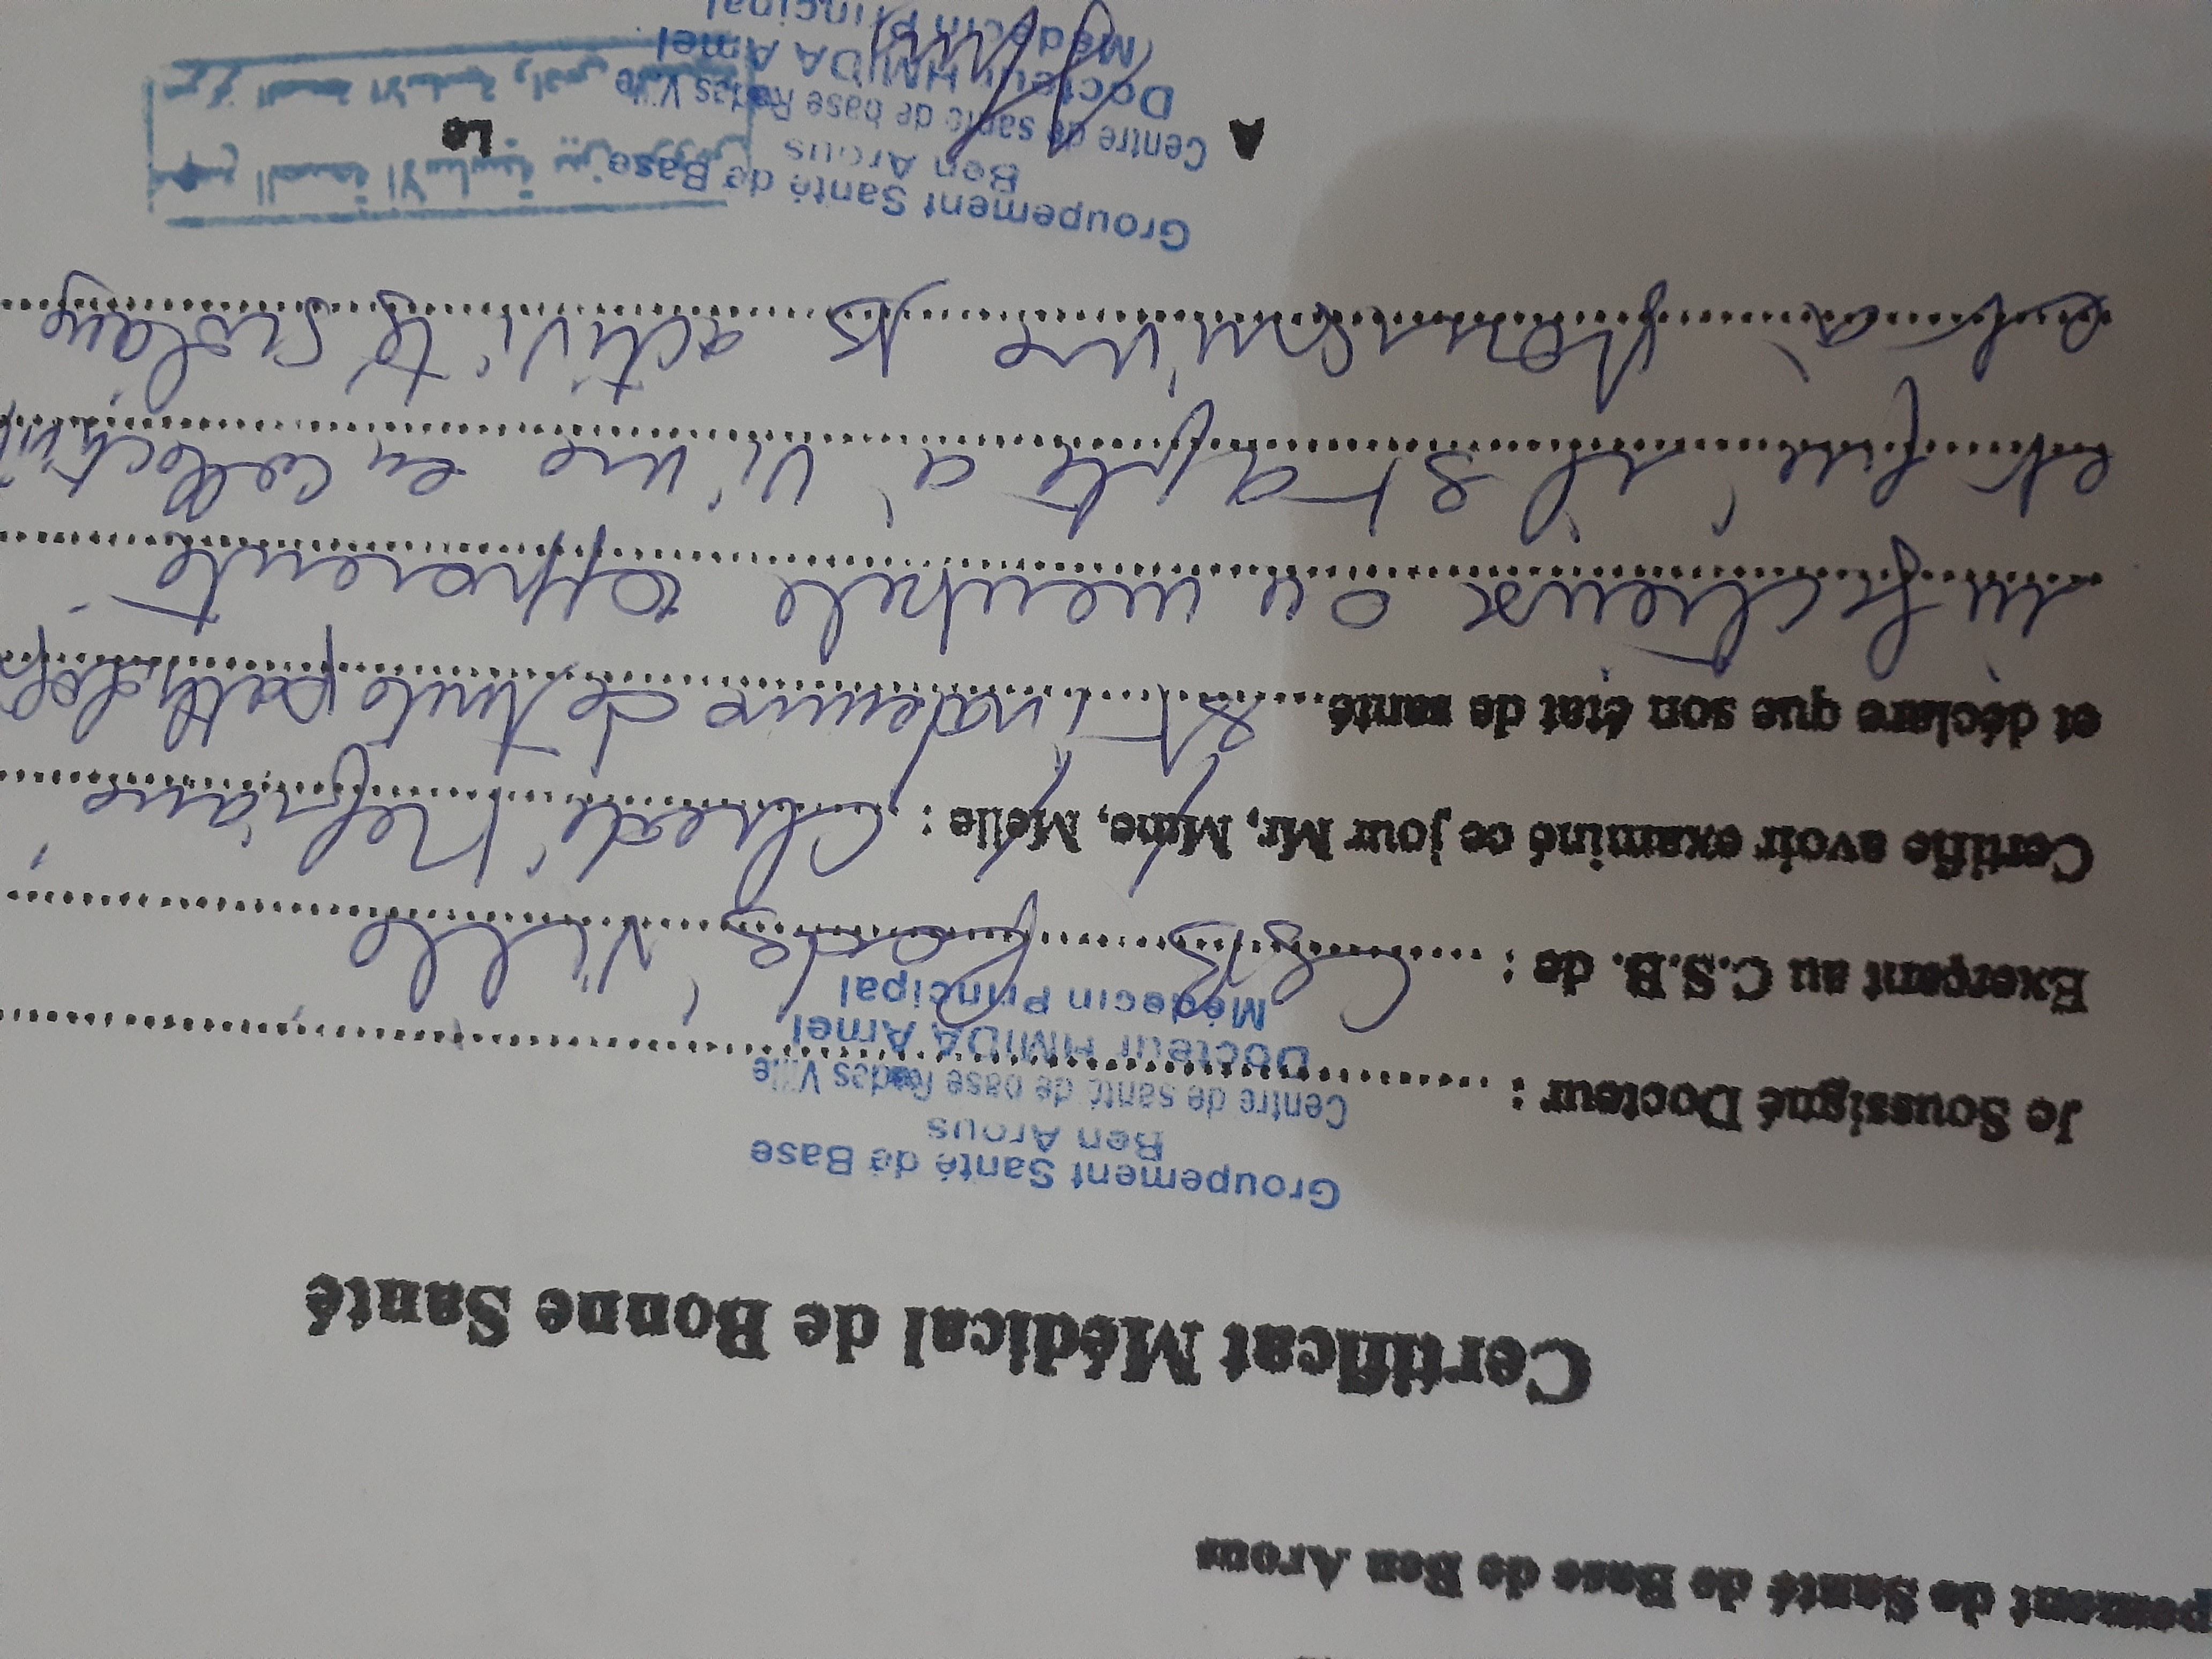 pement de Santé de Base de Ben Arous
Certificat Médical de Bonne Santé
Groupement Santé de Base
Ben Arous
Centre de santé de base Radès Ville
Docteur HMIDA Amel
Médecin Principal
Je Soussigné Docteur :
Exerçant au C.S.B. de : CSB Radès Ville
Certifie avoir examiné ce jour Mr, Mme, Melle : Chedi
et déclare que son état de santé est indemne de toute
infectieuse ou mentale apparente
et qu'il est apte à vivre en
et à activité
Groupement Santé de Base
Ben Arous
Centre de santé de base Radès Ville
Docteur HMIDA Amel
Médecin Principal
A Le